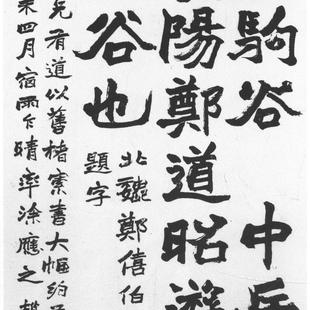 駒谷中岳
陽鄭道昭遊
谷也
北魏鄭僖伯
題字
兄有道以舊楮索書大幅約
未四月宿雨乍晴率涂應之趙